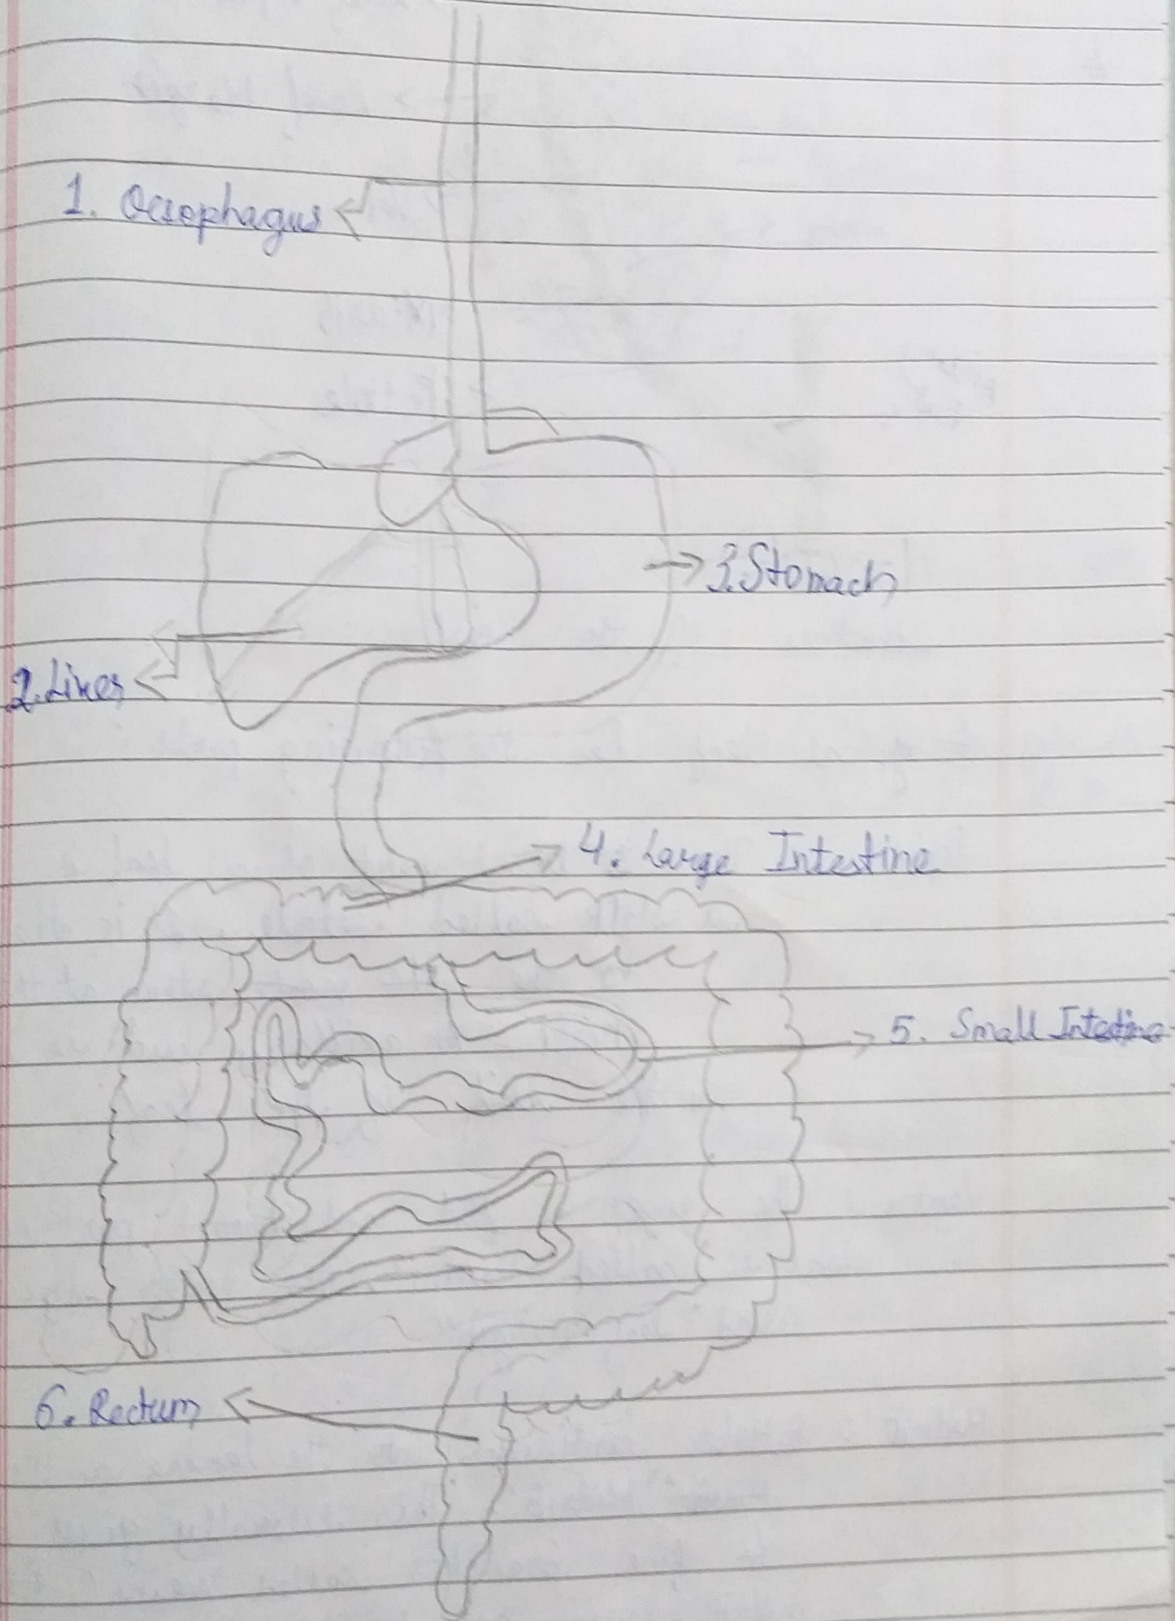 1. Oesophagus
3. Stomach
2. Liver
4. Large Intestine
5. Small Intestine
6. Rectum